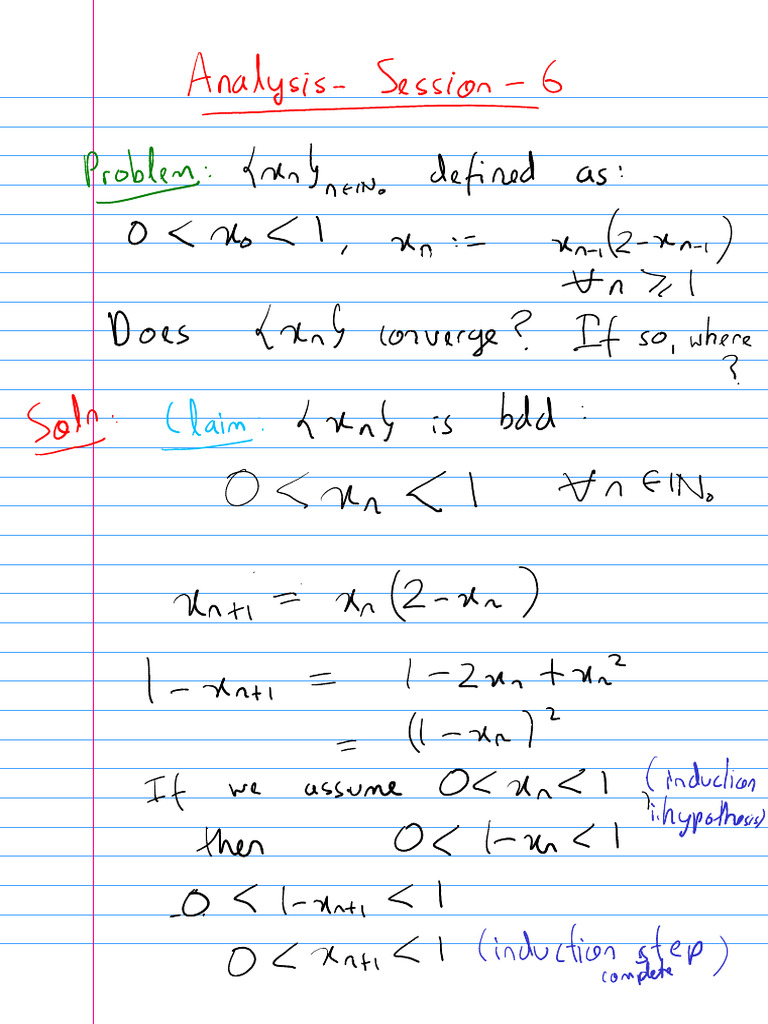 Analysis - Session - 6
Problem: {xₙ}ₙ∈ℕ₀ defined as:
0 < x₀ < 1, xₙ := xₙ₋₁(2-xₙ₋₁)
∀n ⩾ 1
Does {xₙ} converge? If so, where
?
Soln: Claim: {xₙ} is bdd:
0 < xₙ < 1 ∀n ∈ ℕ₀
xₙ₊₁ = xₙ(2-xₙ)
1-xₙ₊₁ = 1-2xₙ+xₙ²
= (1-xₙ)²
If we assume 0 < xₙ < 1 (induction
hypothesis)
then 0 < 1-xₙ < 1
0 < 1-xₙ₊₁ < 1
0 < xₙ₊₁ < 1 (induction step
complete)